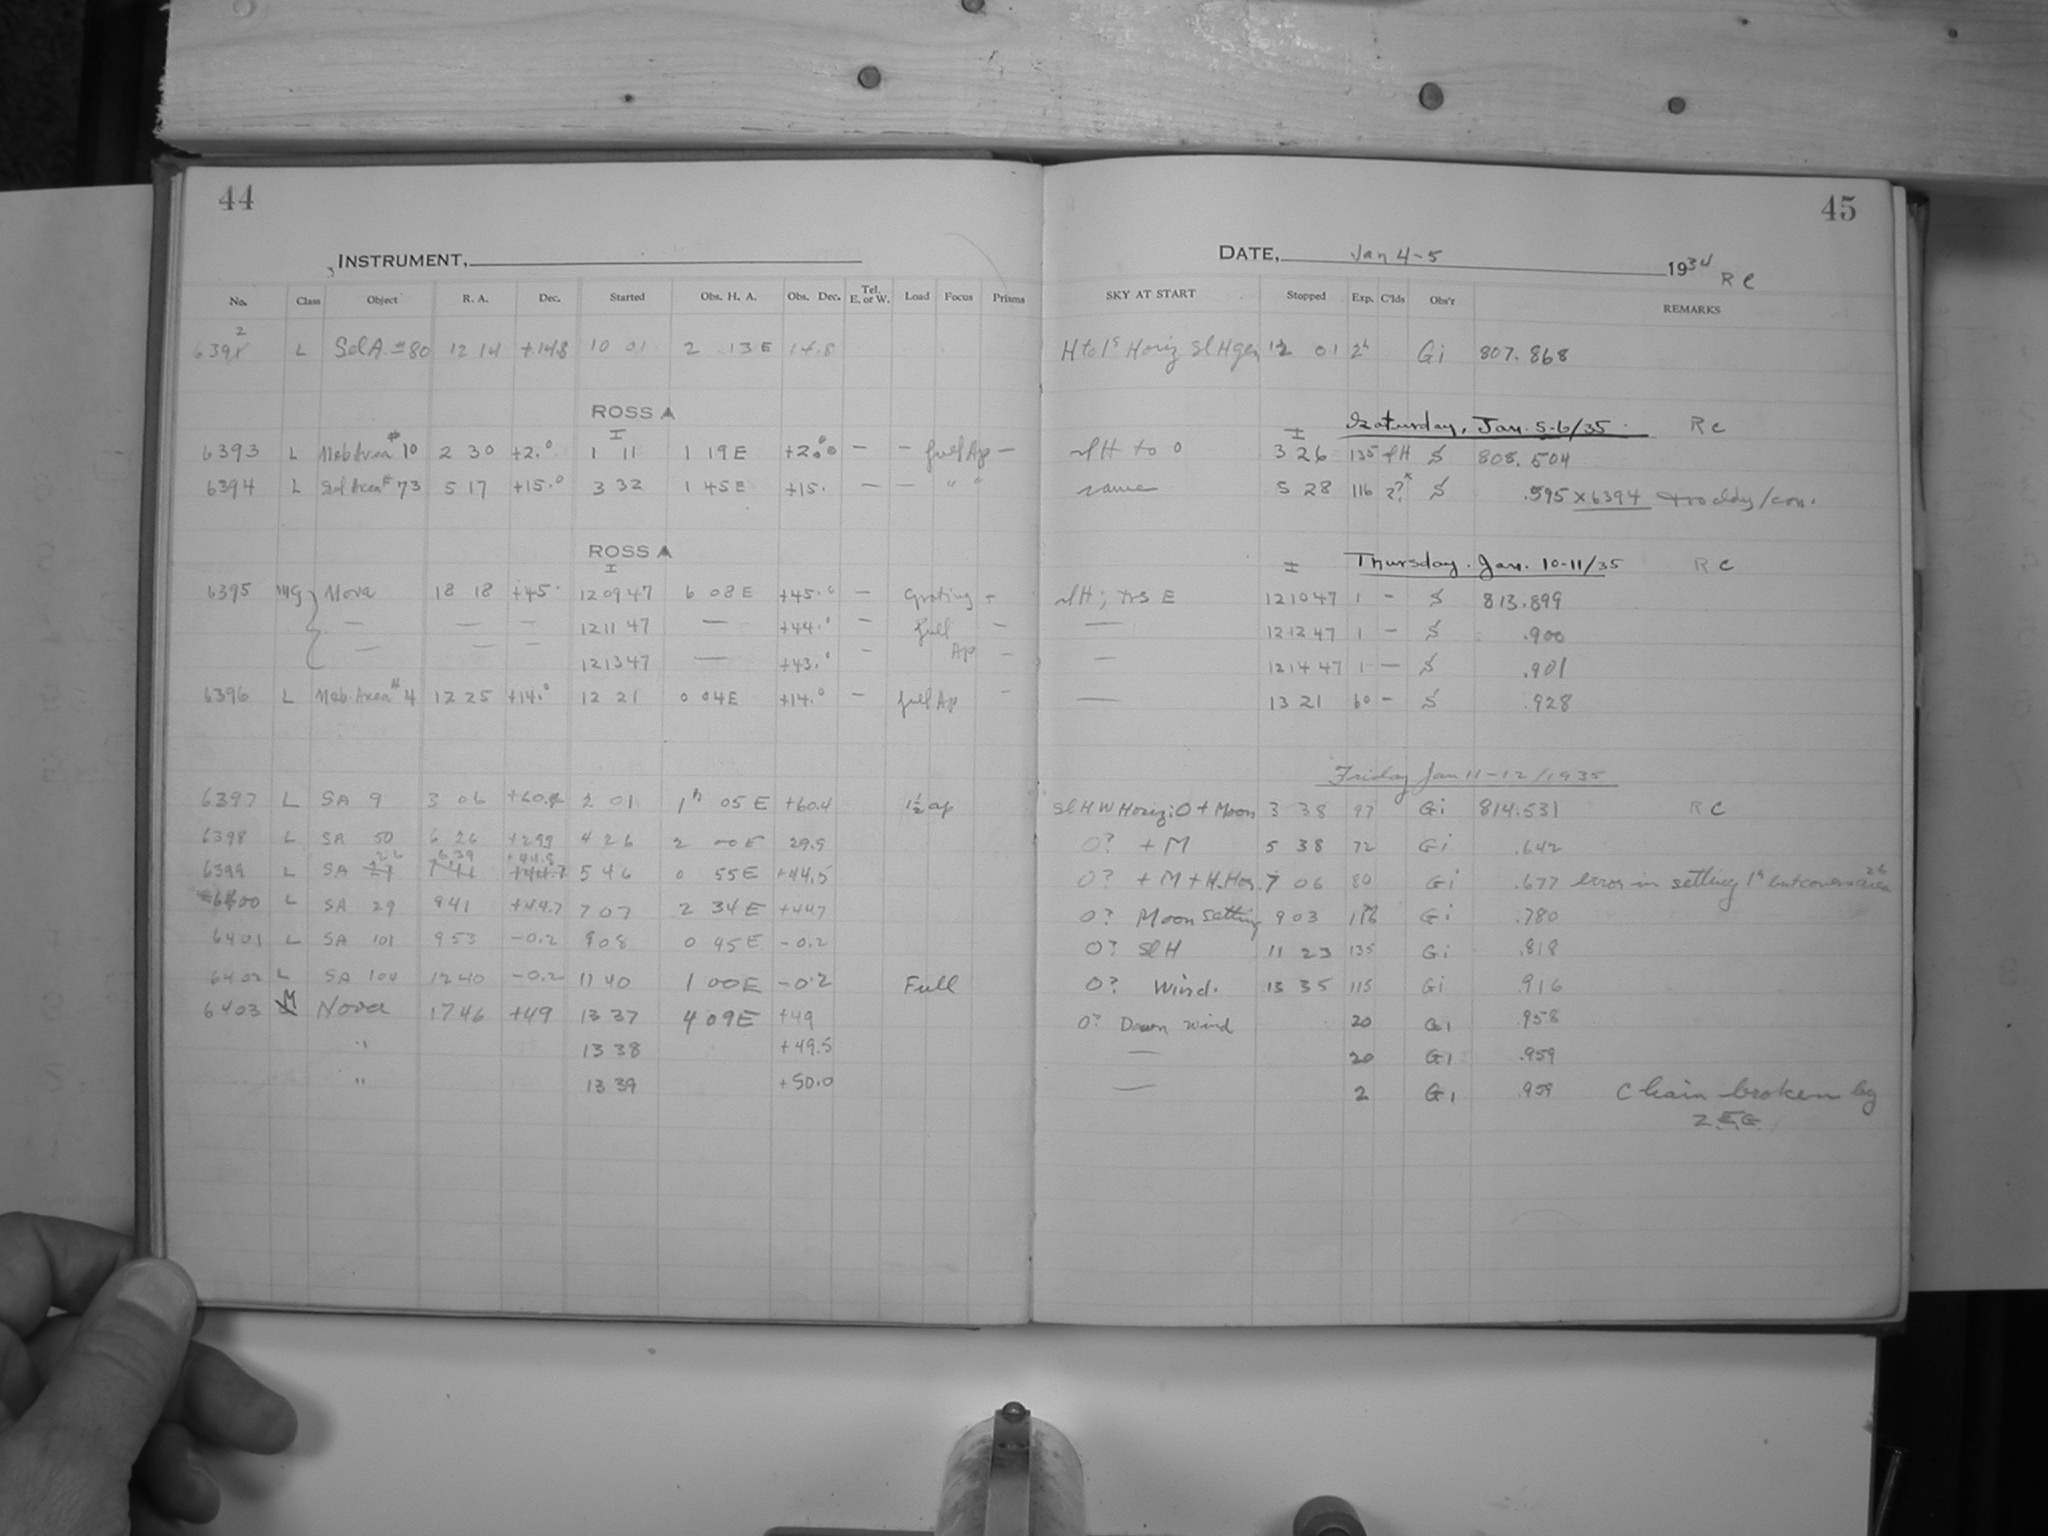 44
INSTRUMENT,
No. Class Object R. A. Dec. Started Obs. H. A. Obs. Dec. Tel. E. or W. Load Focus Prisms
6392 L Sel A. #80 12 14 +14.8 10 01 2 13 E 14.8
ROSS A
I
6393 L Neb Area #10 2 30 +2.° 1 11 1 19 E +2.° — — full Ap —
6394 L Sel Area #73 5 17 +15.° 3 32 1 45 E +15. — — " "
ROSS A
I
6395 MG Nova 18 18 +45. 12 09 47 6 08 E +45.° — Grating -
— — — 12 11 47 — +44.° — full —
— — — 12 13 47 — +43.° — Ap —
6396 L Neb Area #4 12 25 +14.° 12 21 0 04 E +14.° — full Ap —
6397 L SA 9 3 06 +60.4 2 01 1h 05 E +60.4 1½ ap
6398 L SA 50 6 26 +29.9 4 26 2 00 E 29.9
26 6 39 +44.8
6399 L SA 27 7 41 +44.7 5 46 0 55 E +44.5
6400 L SA 29 9 41 +44.7 7 07 2 34 E +44.7
6401 L SA 101 9 53 -0.2 9 08 0 45 E -0.2
6402 L SA 104 12 40 -0.2 11 40 1 00 E -0.2 Full
6403 M Nova 17 46 +49 13 37 4 09 E +49
" 13 38 +49.5
" 13 39 +50.0
45
DATE, Jan 4-5 1934 R C
SKY AT START Stopped Exp. C'lds Obs'r REMARKS
H to 1s Horiz Sl H gen 12 01 2h Gi 807.868
I Saturday, Jan. 5-6/35 R C
sl H to 0 3 26 135 sl H S 808.504
same 5 28 116 2?x S .595 x 6394 too cldy/con.
I Thursday. Jan. 10-11/35 R C
sl H; trs E 12 10 47 1 — S 813.899
— 12 12 47 1 — S .900
— 12 14 47 1 — S .901
— 13 21 60 — S .928
Friday Jan 11-12/1935
sl H W Horiz; 0 + Moon 3 38 97 Gi 814.531 R C
0? + M 5 38 72 Gi .642
0? + M + H. Hor. 7 06 80 Gi .677 error in setting 1h but covers area 26
0? Moon setting 9 03 116 Gi .780
0? sl H 11 23 135 Gi .818
0? Wind. 13 35 115 Gi .916
0? Dawn wind 20 Gi .958
— 20 Gi .959
— 2 Gi .959 Chain broken by
Z E G